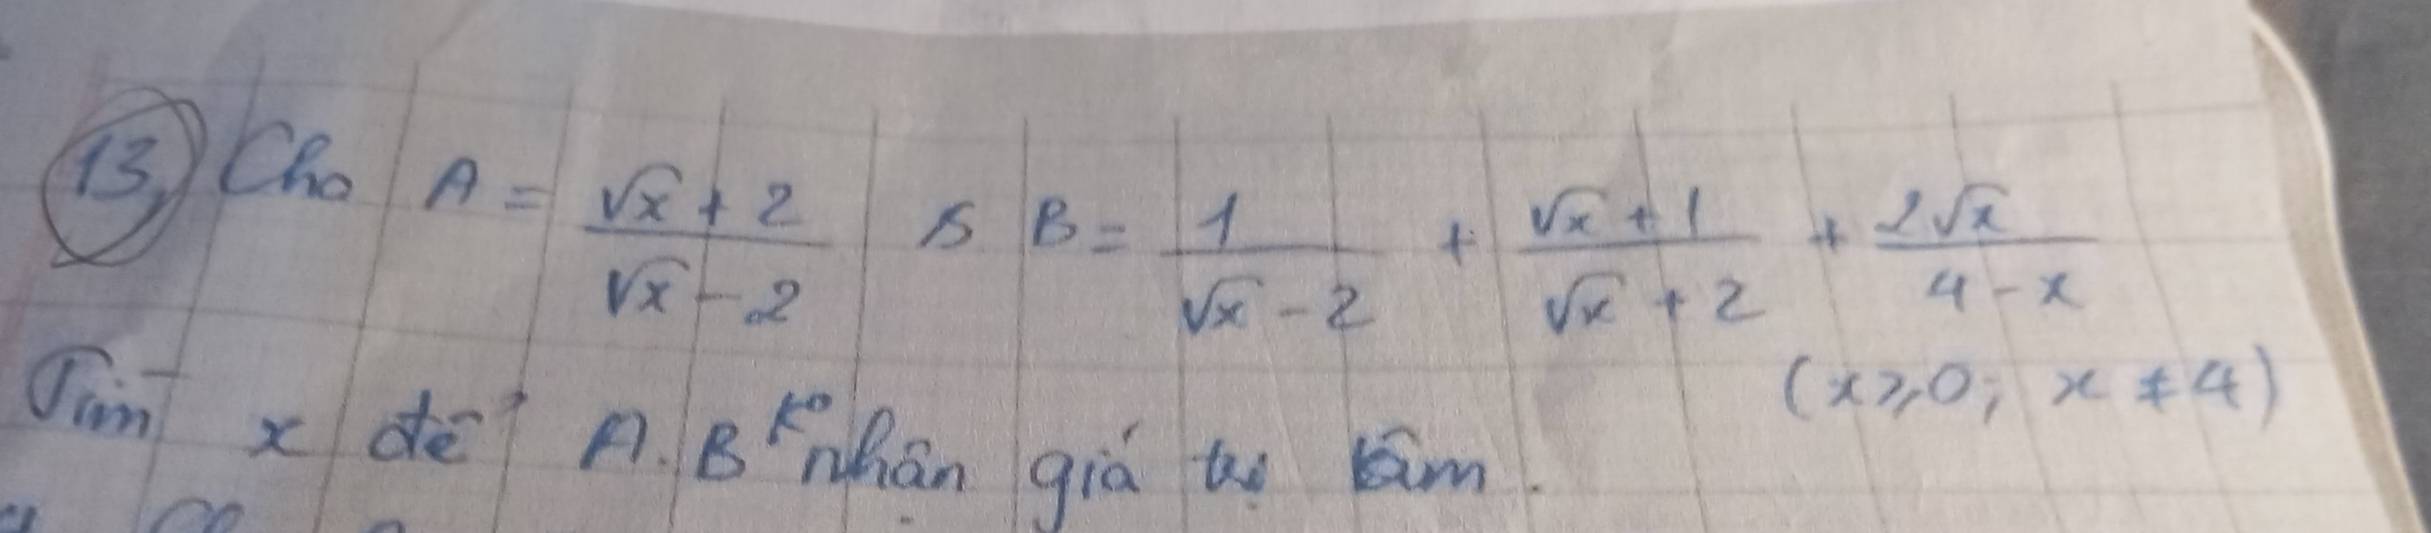 13, Cho A = (√x + 2)/(√x - 2) & B = 1/(√x - 2) + (√x + 1)/(√x + 2) + 2√x/(4 - x)
(x ≥ 0; x ≠ 4)
Tìm x để A.B k° nhận giá trị âm.